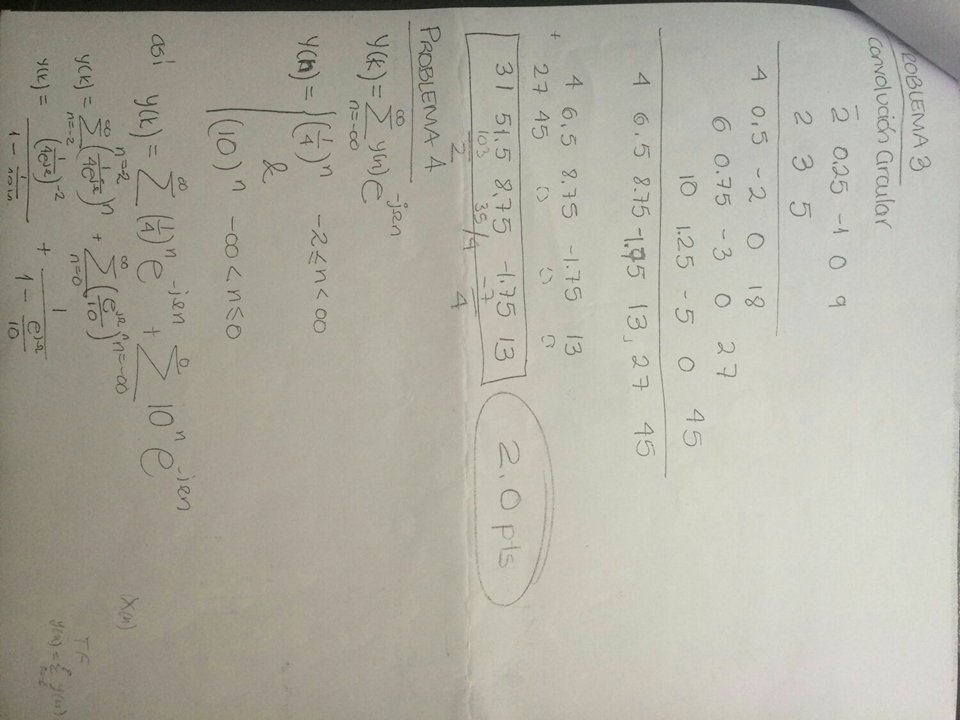 PROBLEMA 3
Convolución Circular
2 0.25 -1 0 9
2 3 5
4 0,5 -2 0 18
6 0.75 -3 0 27
10 1.25 -5 0 45
4 6.5 8.75 -1.75 13, 27 45
4 6.5 8.75 -1.75 13
+ 27 45 0 0 0
31 51.5 8.75 -1.75 13
103 35/4 -7
2 4
2.0 pts
PROBLEMA 4
Y(k) = ∞ Σ n=-∞ y(n) e^-jΩn
y(n) = { (1/4)^n -2 ≤ n < ∞
&
(10)^n -∞ < n ≤ 0
así Y(k) = ∞ Σ n=-2 (1/4)^n e^-jΩn + 0 Σ n=-∞ 10^n e^-jΩn
Y(k) = ∞ Σ n=-2 (1/4e^jΩ)^n + ∞ Σ n=0 (e^jΩ/10)^n
Y(k) = (1/4e^jΩ)^-2 / 1 - + 1 / 1 - e^jΩ/10
X(n)
TF